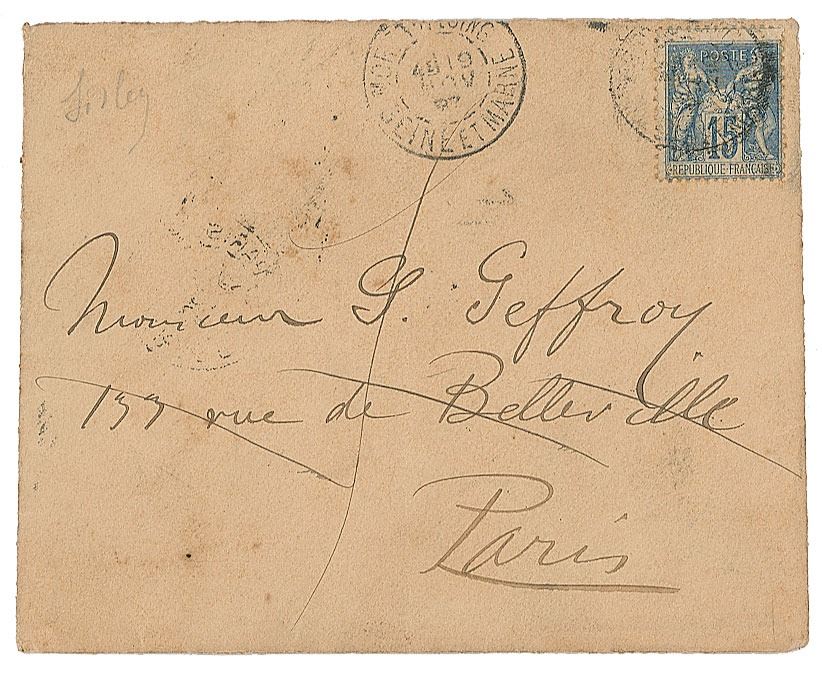 Sisley
SEINE ET MARNE
POSTES
15
REPUBLIQUE FRANÇAISE
Monsieur G. Geffroy
133 rue de Belleville
Paris